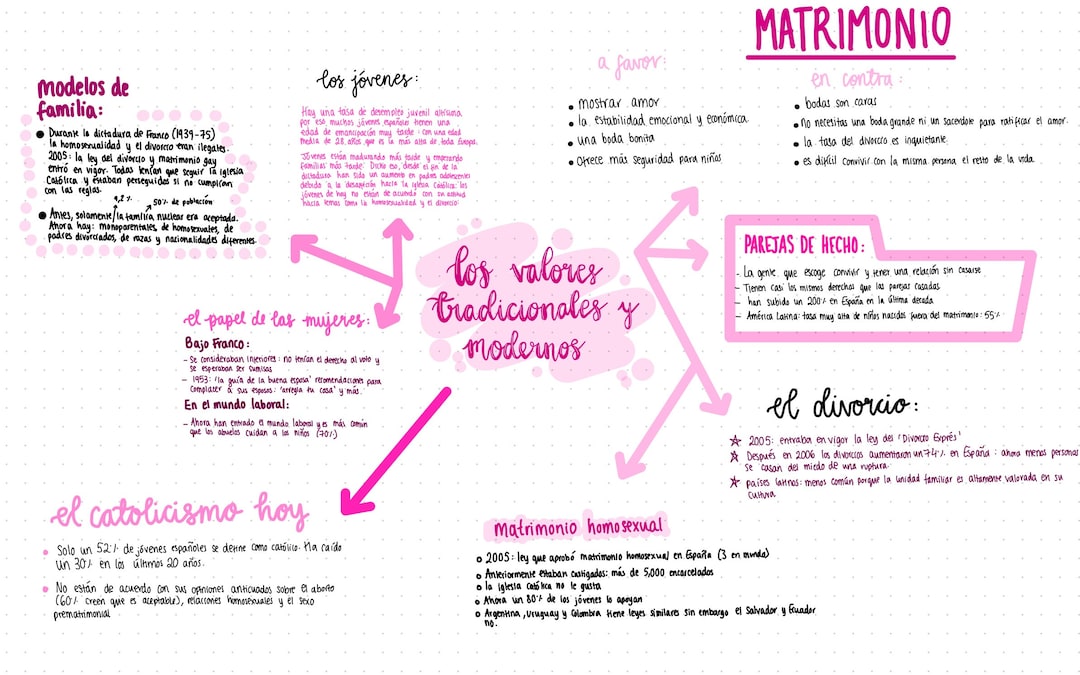 MATRIMONIO
a favor:
• mostrar amor
• la estabilidad emocional y económica.
• una boda bonita
• Ofrece más seguridad para niños
en contra:
• bodas son caras
• no necesitas una boda grande ni un sacerdote para ratificar el amor.
• la tasa del divorcio es inquietante.
• es difícil convivir con la misma persona el resto de la vida.
modelos de
familia:
• Durante la dictadura de Franco (1939-75)
la homosexualidad y el divorcio eran ilegales.
2005: la ley del divorcio y matrimonio gay
entró en vigor. Todas tenían que seguir la iglesia
Católica y estaban perseguidos si no cumplían
con las reglas.
50% de población
• Antes, solamente la familia nuclear era aceptada.
Ahora hay: monoparentales, de homosexuales, de
padres divorciados, de razas y nacionalidades diferentes.
los jóvenes:
Hay una tasa de desempleo juvenil altísima,
por eso, muchos jóvenes españoles tienen una
edad de emancipación muy tarde: con una edad
media de 28 años que es la más alta de toda Europa.
Jóvenes están madurando más tarde y empezando
familias más tarde. Dicho eso, desde el fin de la
dictadura han sido un aumento en padres adolescentes
debido a la desafección hacia la iglesia Católica: los
jóvenes de hoy no están de acuerdo con su actitud
hacia temas como la homosexualidad y el divorcio.
los valores
tradicionales y
modernos
PAREJAS DE HECHO:
- La gente que escoge convivir y tener una relación sin casarse
- Tienen casi los mismos derechos que las parejas casadas
- han subido un 200% en España en la última década
- América Latina: tasa muy alta de niños nacidos fuera del matrimonio: 55%
el papel de las mujeres:
Bajo Franco:
- Se consideraban inferiores: no tenían el derecho al voto y
se esperaban ser sumisas
- 1953: 'la guía de la buena esposa' recomendaciones para
complacer a sus esposos: 'arregla tu casa' y más.
En el mundo laboral:
- Ahora han entrado el mundo laboral y es más común
que los abuelos cuidan a los niños (70%)
el divorcio:
☆ 2005: entraba en vigor la ley del 'Divorcio Exprés'
☆ Después en 2006 los divorcios aumentaron un 74% en España: ahora menos personas
se casan del miedo de una ruptura.
☆ países latinos: menos común porque la unidad familiar es altamente valorada en su
cultura.
el catolicismo hoy
• Solo un 52% de jóvenes españoles se define como católico. Ha caído
un 30% en los últimos 20 años.
• No están de acuerdo con sus opiniones anticuados sobre el aborto
(60% creen que es aceptable), relaciones homosexuales y el sexo
prematrimonial
matrimonio homosexual
o 2005: ley que aprobó matrimonio homosexual en España (3 en mundo)
o Anteriormente estaban castigados: más de 5,000 encarcelados
o la iglesia católica no le gusta
o Ahora un 80% de los jóvenes lo apoyan
o Argentina, Uruguay y Colombia tiene leyes similares sin embargo el Salvador y Ecuador
no.